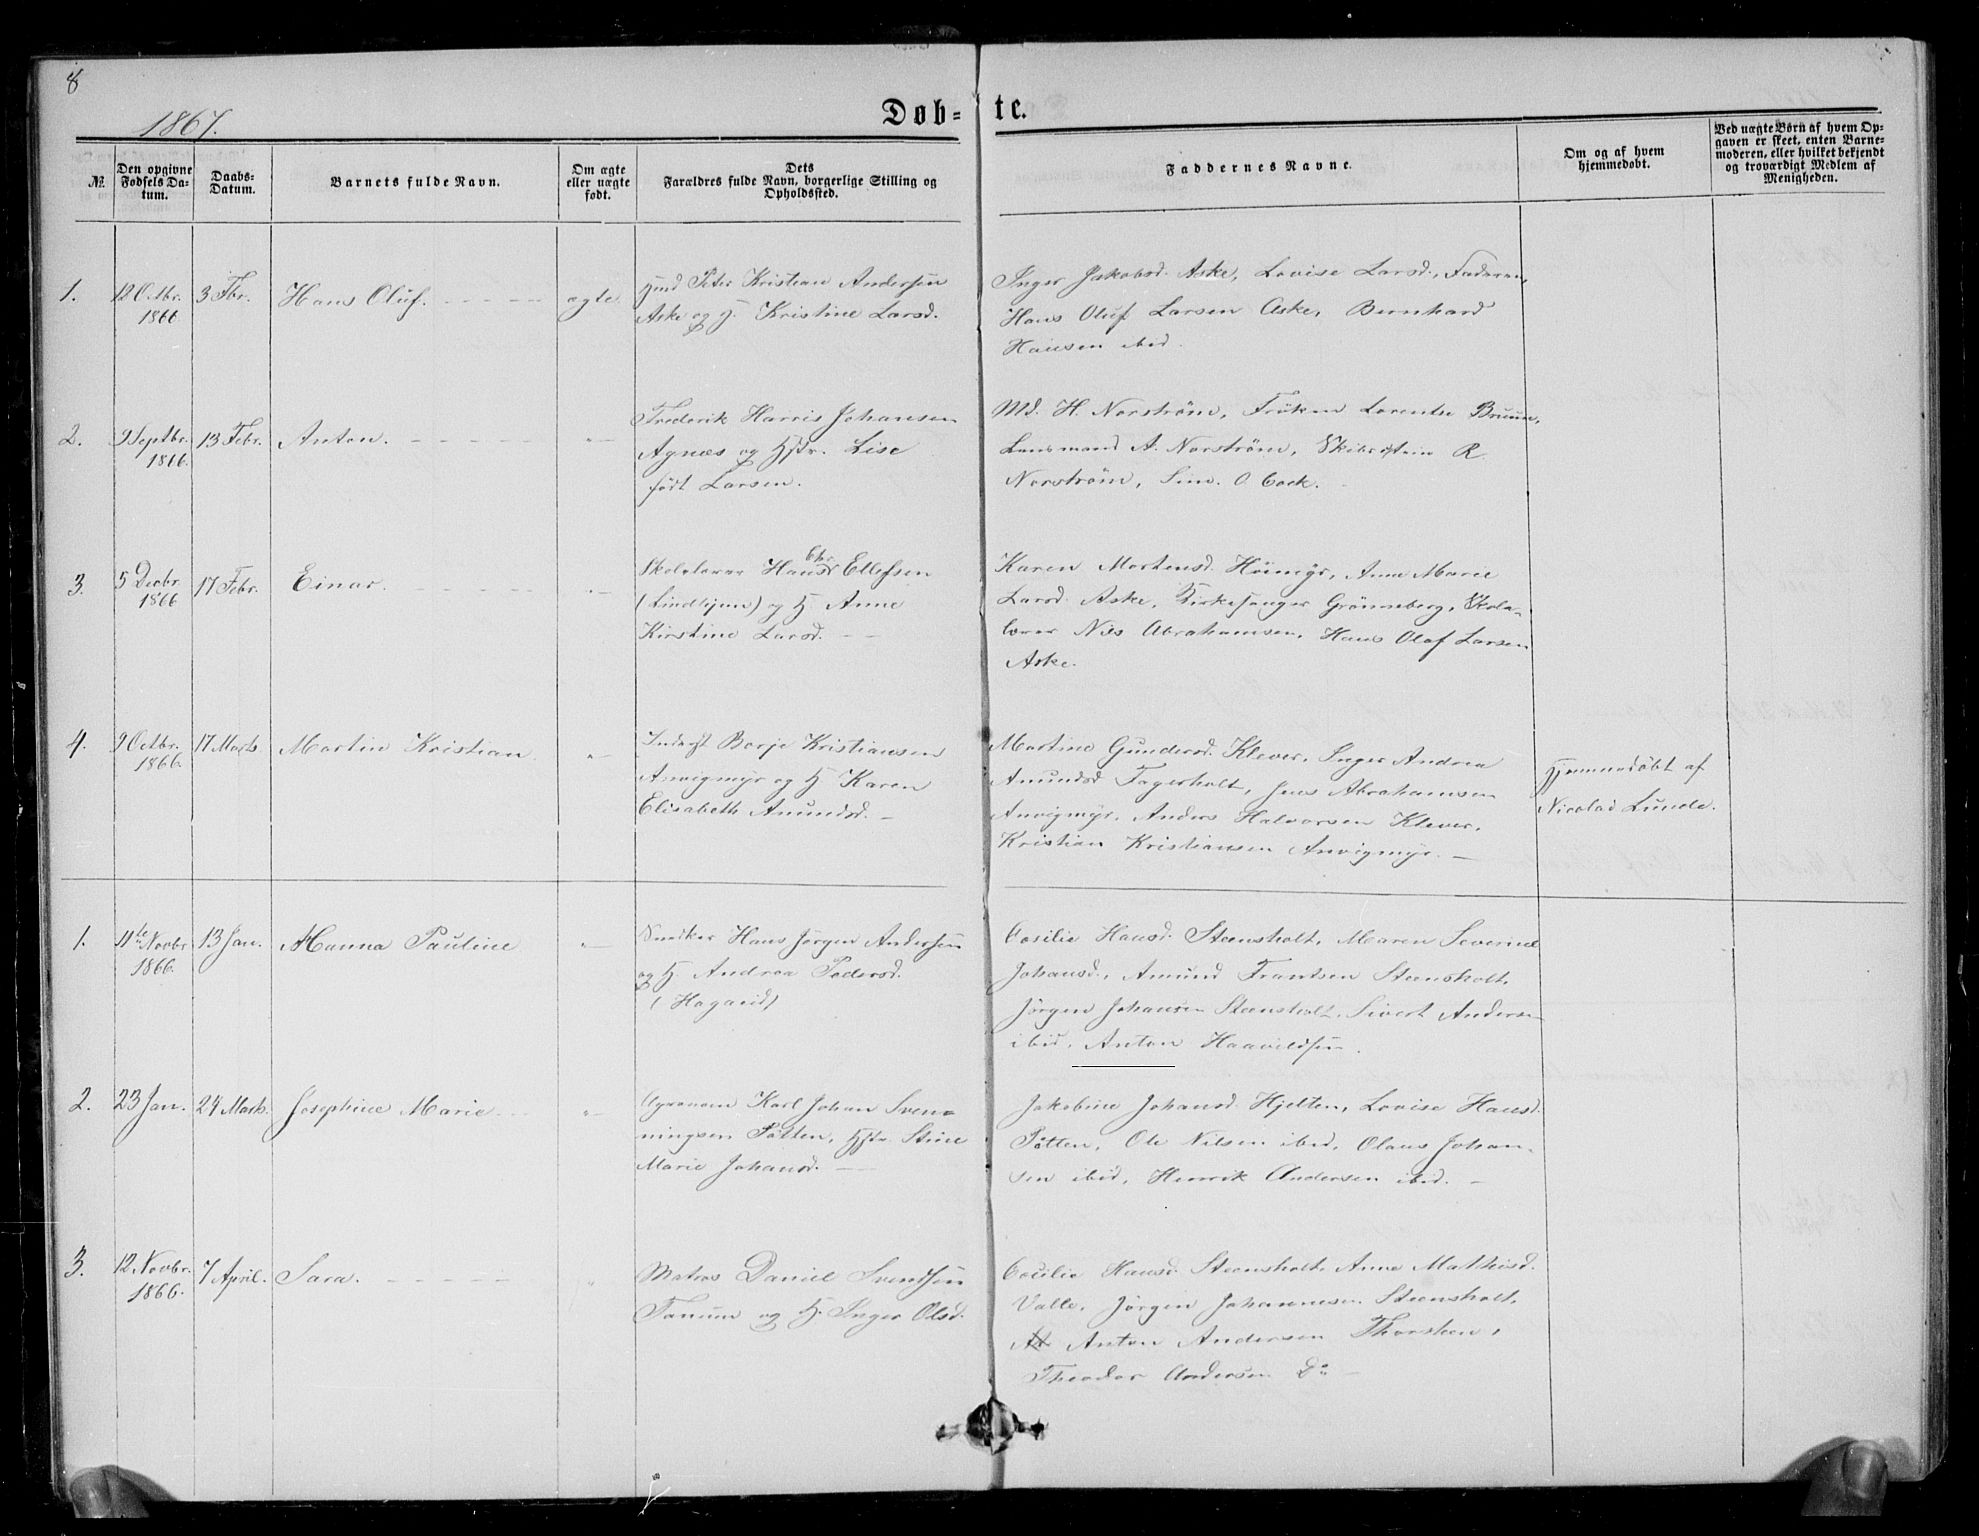 8
1867.
Døb-
te.
№.
Den opgivne
Fødsels Da-
tum.
Daabs-
Datum.
Barnets fulde Navn.
Om ægte
eller uægte
født.
Dets
Forældres fulde Navn, borgerlige Stilling og
Opholdssted.
Faddernes Navne.
Om og af hvem
hjemmedøbt.
Ved uægte Børn af hvem Op-
gaven er skeet, enten Barne-
moderen, eller hvilket bekjendt
og troværdigt Medlem af
Menigheden.
1.
12 Octbr.
1866
3 Fbr.
Hans Oluf.
ægte
Peter Kristian Andersen
Aske og H. Kristine Larsd.
Inger Jakobsd. Aske, Lovise Larsd., Faderen,
Hans Oluf Larsen Aske, Bernhard
Hansen ibid.
2.
9 Septbr.
1866.
13 Febr.
Anton.
"
Frederik Harris Johansen
Agnæs og Hstr. Lise
født Larsen.
Md. H. Norstrøm, Frøken Lorentse Bruun,
Lensmand A. Norstrøm, R.
Norstrøm, Sim. O. Cock.
3.
5 Decbr
1866
17 Febr.
Einar.
"
Skolelærer Hans Chr. Ellefsen
(Lindlijan) og H. Anne
Kirstine Larsd.
Karen Mortensd. Høimyr, Anne Marie
Larsd. Aske, Kirkesanger Grønneberg, Skole-
lærer Nils Abrahamsen, Hans Olaf Larsen
Aske.
4.
9 Octbr.
1866.
17 Marts
Martin Kristian
"
Inderst Borje Kristiansen
Anvigmyr og H. Karen
Elisabeth Amundsd.
Martine Gundersd. Klever, Inger Andrea
Amundsd Fagerholt, Jens Abrahamsen
Anvigmyr, Anders Halvorsen Klever,
Kristian Kristiansen Anvigmyr.
Hjemmedøbt af
Nicolai Lunde.
1.
11te Novbr
1866.
13 Jan.
Hanna Pauline
"
Snedker Hans Jørgen Andersen
og H. Andrea Pedersd.
(Hagaeid)
Cecilie Hansd. Steensholt, Maren Severine
Johansd., Amund Frantsen Steensholt,
Jørgen Johansen Steensholt, Sivert Andersen
ibid, Anton Haavildsen.
2.
23 Jan.
24 Marts.
Josephine Marie
"
Karl Johan Sven-
ningsen Pøtten, Hstr. Stine
Marie Johansd.
Jakobine Johansd. Hjelten, Lovise Hansd.
Pøtten, Ole Nilsen ibid, Olaus Johan-
sen ibid, Henrik Andersen ibid.
3.
12 Novbr.
1866.
7 April.
Sara.
"
Matros Daniel Svendsen
Fanum og H. Inger Olsd.
Cecilie Hansd. Steensholt, Anne Mathisd.
Valle, Jørgen Johannesen Steensholt,
Anton Andersen Thorsteen,
Theodor Andersen Do